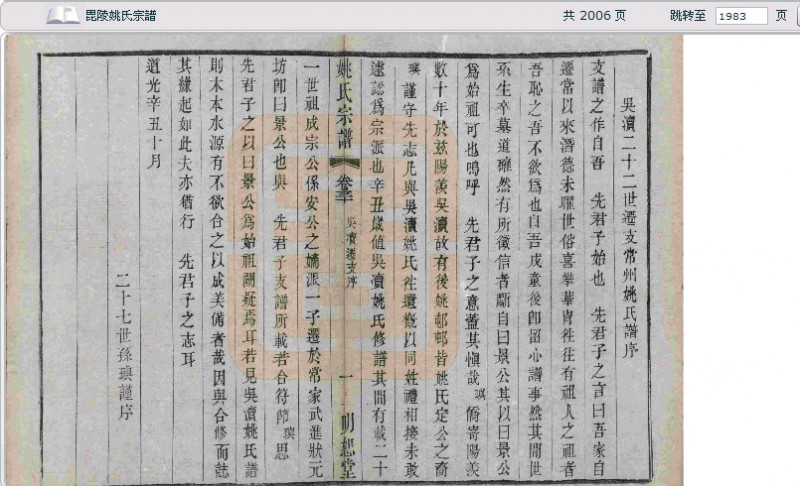 毘陵姚氏宗譜
共 2006 页
跳转至 1983 页
吳瀆二十二世遷支常州姚氏譜序
支譜之作自吾 先君子始也 先君子之言曰吾家自
遷常以來潛德未曜世俗喜攀華冑往往有祖人之祖者
吾恥之吾不欲爲也自吾成童後卽留心譜事然其間世
系生卒墓道確然有所徵信者斷自曰景公其以曰景公
爲始祖可也嗚呼 先君子之意蓋其愼哉 璵僑寄陽羨
數十年於茲陽羨吳瀆故有後姚邨邨皆姚氏定公之裔
璵謹守先志凡與吳瀆姚氏往還槪以同姓禮相接未敢
遽認爲宗派也辛丑歲值吳瀆姚氏修譜其間有載二十
姚氏宗譜 卷三 吳瀆遷支序 一 明恕堂
一世祖成宗公係安公之嫡派一子遷於常家武進狀元
坊卽曰景公也與 先君子支譜所載若合符節 璵思
先君子之以曰景公爲始祖闕疑焉耳若見吳瀆姚氏譜
則木本水源有不欲合之以成美備者哉因與合修而誌
其緣起如此夫亦猶行 先君子之志耳
道光辛丑十月
二十七世孫璵謹序